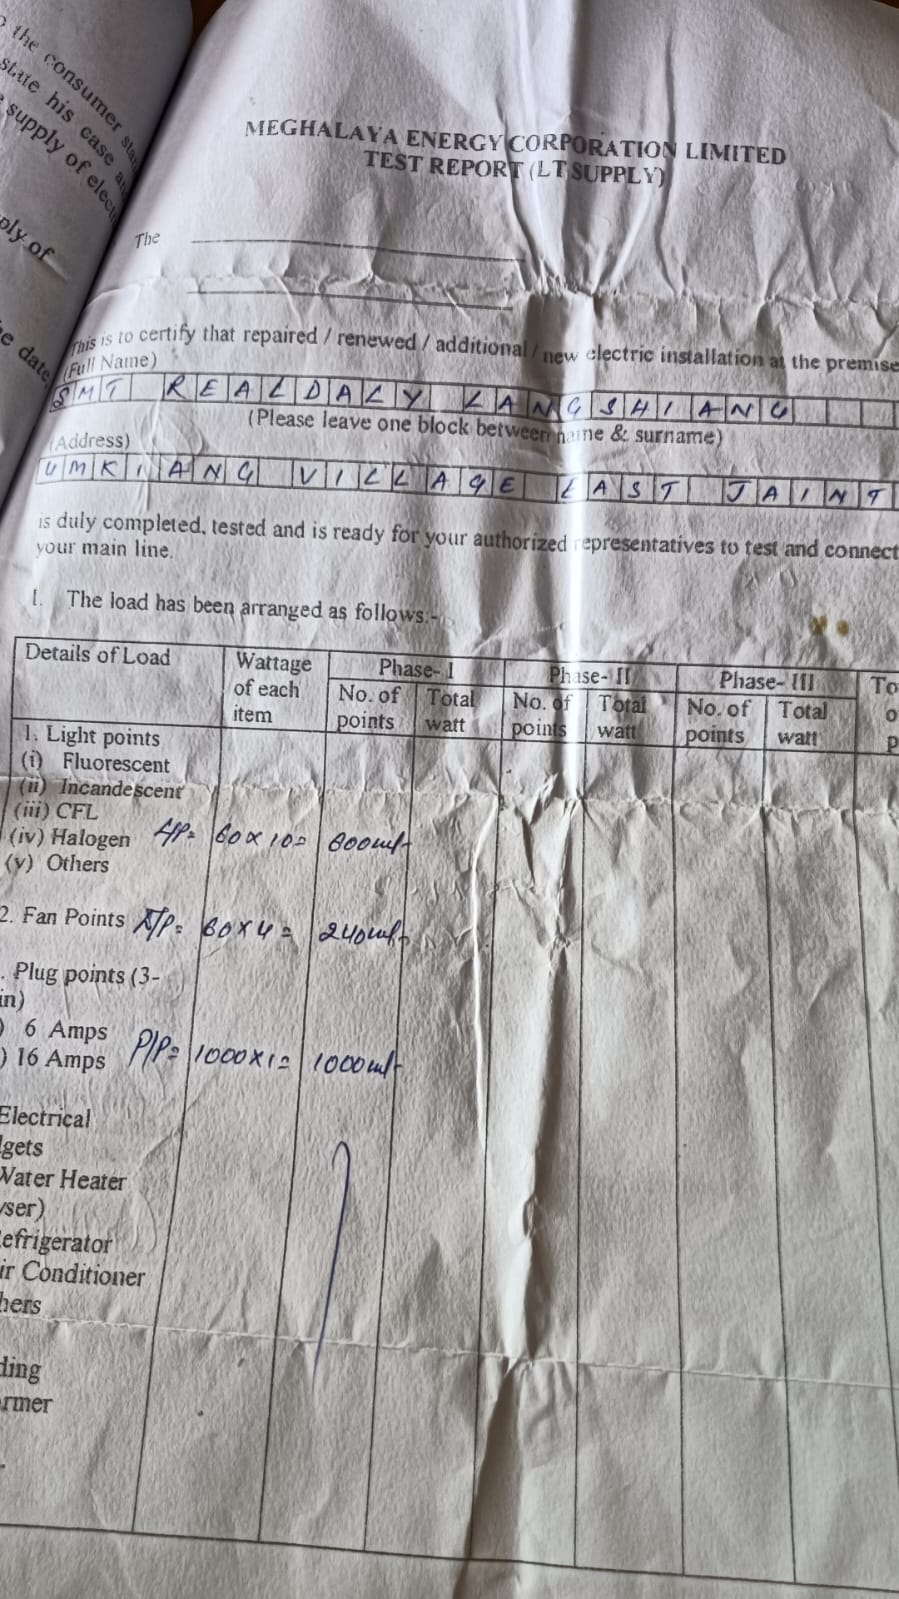 the consumer stan
state his case an
supply of elect
ply of
e date
MEGHALAYA ENERGY CORPORATION LIMITED
TEST REPORT (LT SUPPLY)
The
This is to certify that repaired / renewed / additional / new electric installation at the premise
(Full Name)
SMT REALDALY LANGSHIANG
(Please leave one block between name & surname)
(Address)
UMKIANG VILLAGE EAST JAINT
is duly completed, tested and is ready for your authorized representatives to test and connect
your main line.
1. The load has been arranged as follows:-
Details of Load Wattage of each item Phase- I Phase- II Phase- III To
No. of points Total watt No. of points Total watt No. of points Total watt o p
1. Light points
(i) Fluorescent
(ii) Incandescent
(iii) CFL
(iv) Halogen L/P= 60 x 10= 600w/-
(v) Others
2. Fan Points F/P= 60x4= 240w/-
. Plug points (3-
in)
) 6 Amps
) 16 Amps P/P= 1000x1= 1000w/-
Electrical
gets
Water Heater
yser)
efrigerator
ir Conditioner
hers
ding
rmer